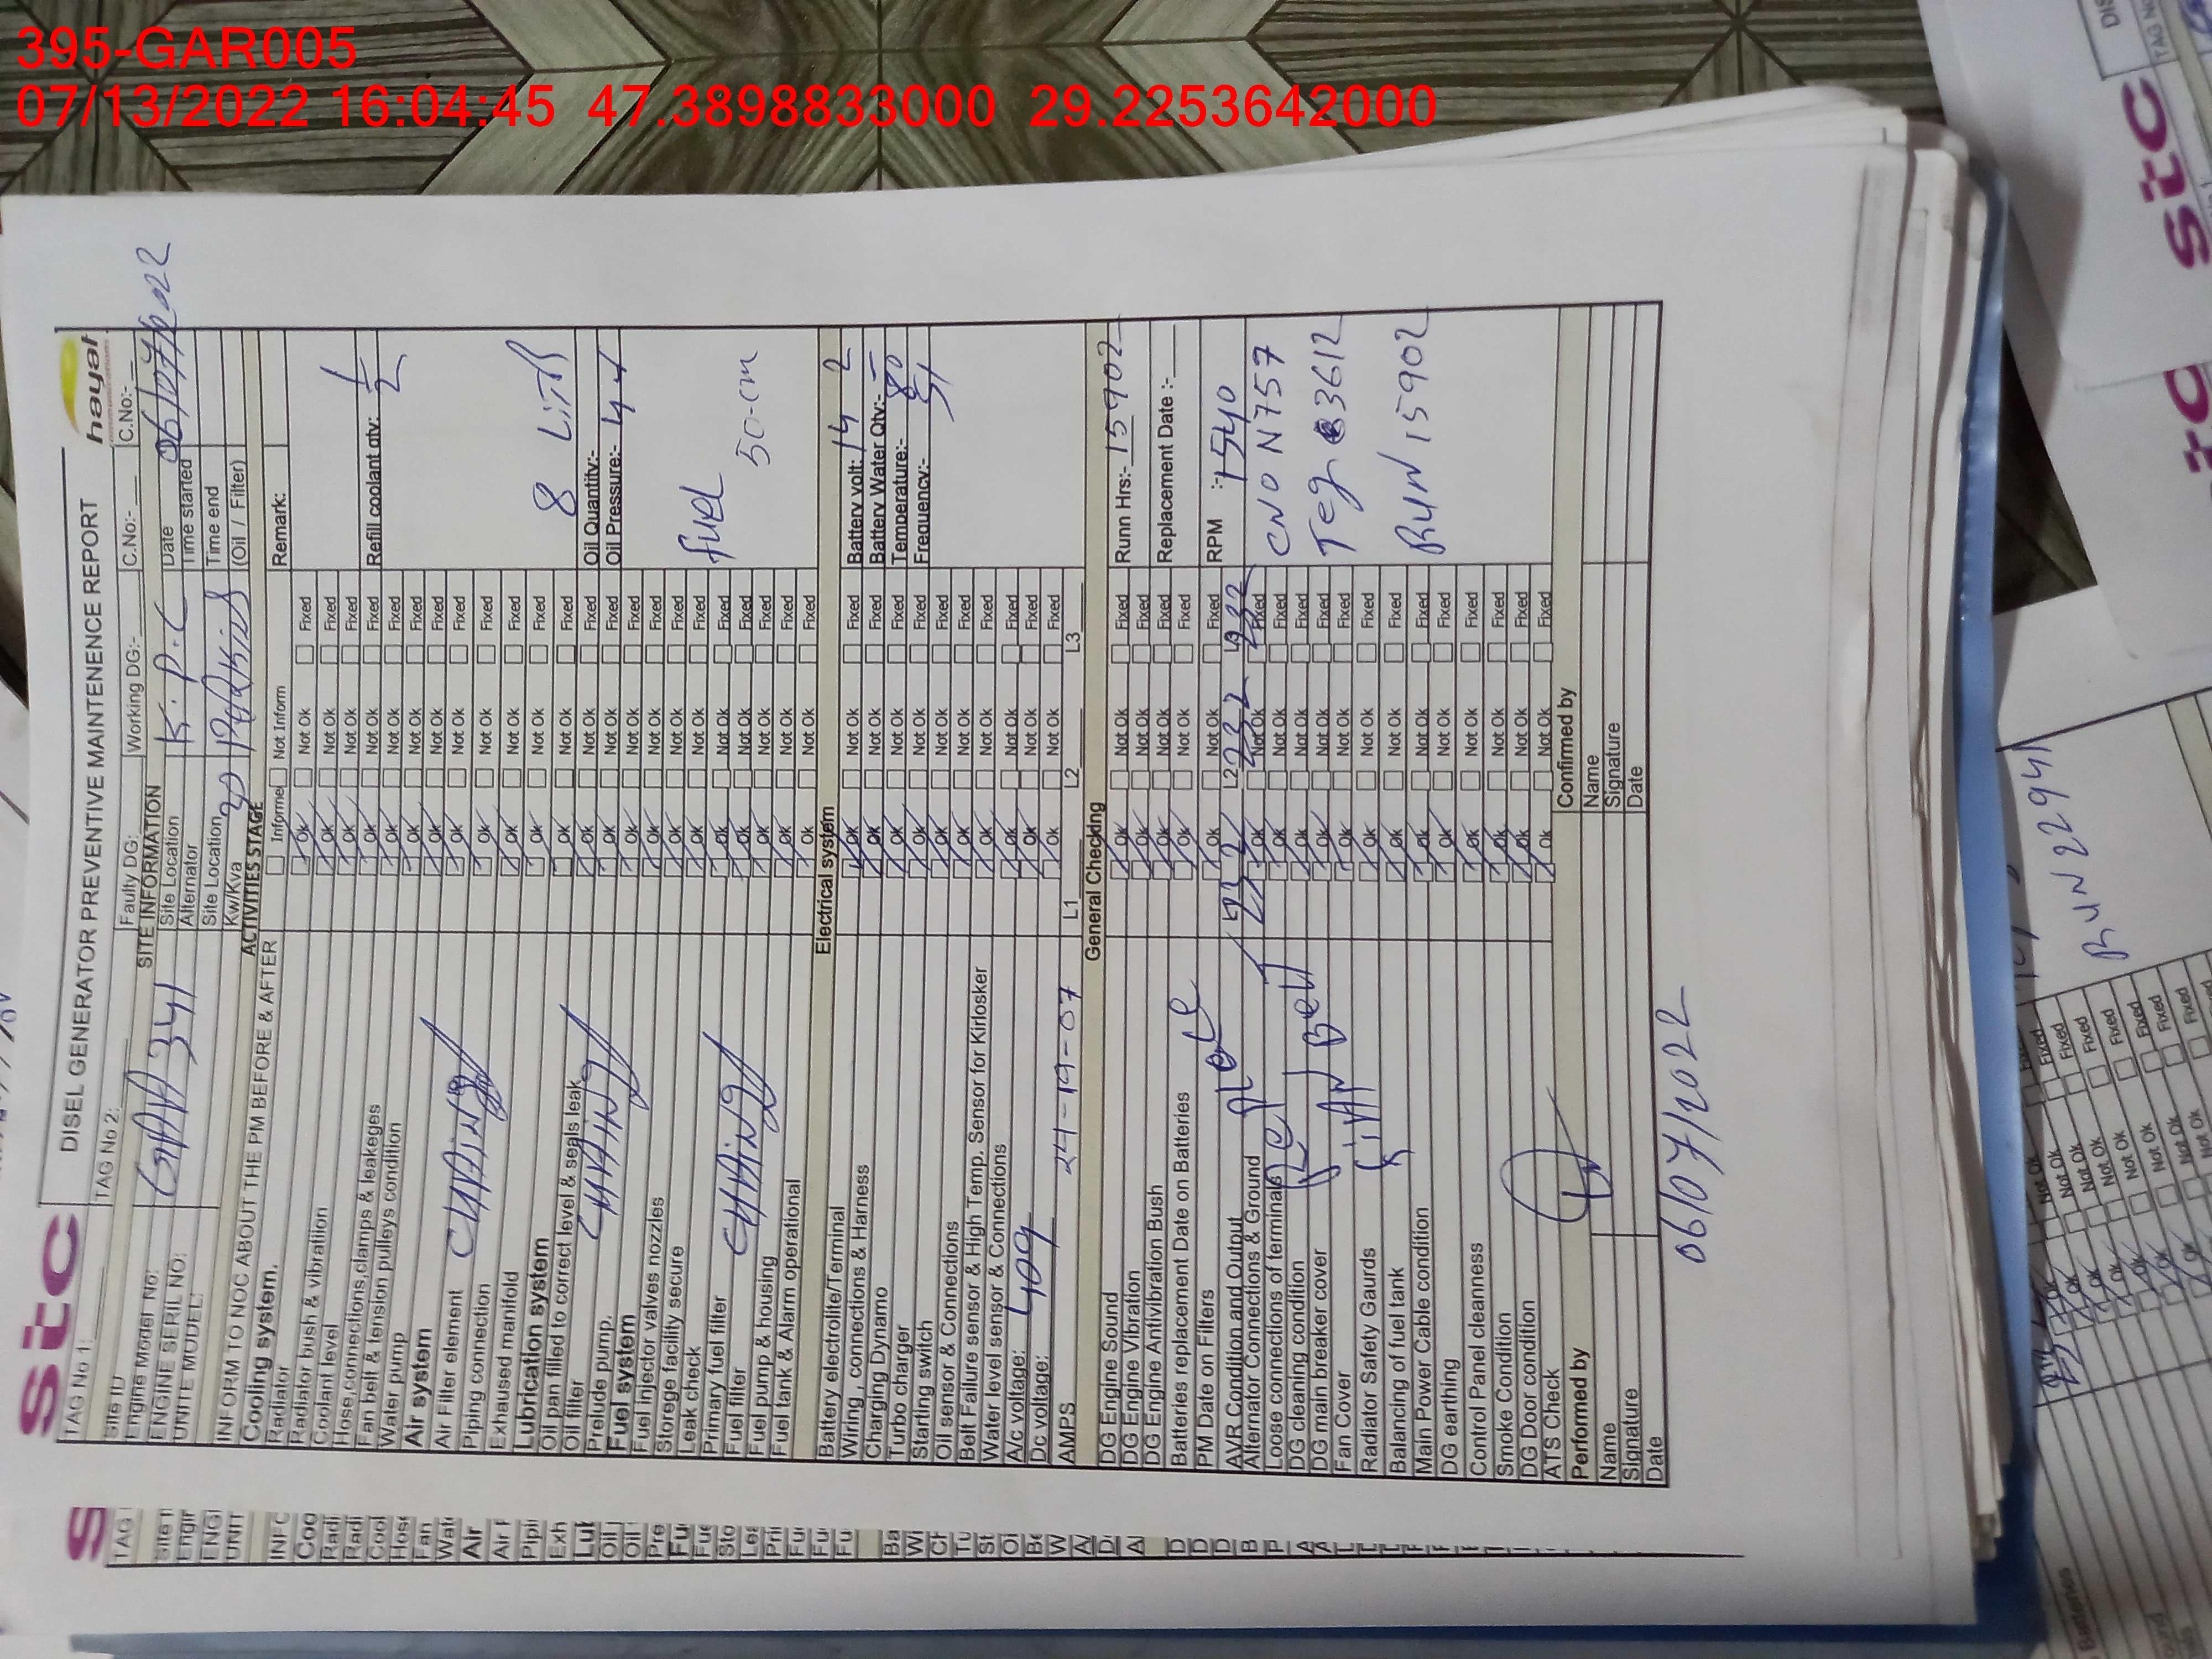 395-GAR005
07/13/2022 16:04:45 47.3898833000 29.2253642000
stc
DISEL GENERATOR PREVENTIVE MAINTENENCE REPORT
hayat
TAG No 1: TAG No 2: Faulty DG: Working DG:- C.No:- C.No:-
SITE INFORMATION
Site ID Site Location K.P.C Date 06/07/2022
Engine Model No: 341 Alternator Time started
ENGINE SERIL NO: Site Location Time end
UNITE MODEL: Kw/Kva (Oil / Filter)
ACTIVITIES STAGE
INFORM TO NOC ABOUT THE PM BEFORE & AFTER Informe Not Inform Remark:
Cooling system.
Radiator Ok Not Ok Fixed
Radiator bush & vibration Ok Not Ok Fixed
Coolant level Ok Not Ok Fixed
Hose,connections,clamps & leakeges Ok Not Ok Fixed Refill coolant qty: 1/2
Fan belt & tension pulleys condition Ok Not Ok Fixed
Water pump Ok Not Ok Fixed
Air system
Air Filter element Ok Not Ok Fixed
Piping connection Ok Not Ok Fixed
Exhaused manifold Ok Not Ok Fixed
Lubrication system
Oil pan filled to correct level & seals leak Ok Not Ok Fixed 8 LiTR
Oil filter Ok Not Ok Fixed Oil Quantity:-
Prelude pump. Ok Not Ok Fixed Oil Pressure:- 44
Fuel system
Fuel injector valves nozzles Ok Not Ok Fixed
Storege facility secure Ok Not Ok Fixed
Leak check Ok Not Ok Fixed
Primary fuel filter Ok Not Ok Fixed FUEL
Fuel filter Ok Not Ok Fixed 50-cm
Fuel pump & housing Ok Not Ok Fixed
Fuel tank & Alarm operational Ok Not Ok Fixed
Electrical system
Battery electrolite/Terminal Ok Not Ok Fixed Battery volt: 14 2
Wiring , connections & Harness Ok Not Ok Fixed Battery Water Qty:-
Charging Dynamo Ok Not Ok Fixed Temperature:- 80
Turbo charger Ok Not Ok Fixed Frequency:- 51
Starting switch Ok Not Ok Fixed
Oil sensor & Connections Ok Not Ok Fixed
Belt Failure sensor & High Temp. Sensor for Kirlosker Ok Not Ok Fixed
Water level sensor & Connections Ok Not Ok Fixed
A/c voltage: 409 Ok Not Ok Fixed
Dc voltage: Ok Not Ok Fixed
AMPS 24-19-07 L1 L2 L3
General Checking
DG Engine Sound Ok Not Ok Fixed Runn Hrs:- 15902
DG Engine Vibration Ok Not Ok Fixed
DG Engine Antivibration Bush Ok Not Ok Fixed Replacement Date :-
Batteries replacement Date on Batteries Ok Not Ok Fixed
PM Date on Filters Ok Not Ok Fixed RPM :- 1540
AVR Condition and Output L2 232
Alternator Connections & Ground Ok Not Ok Fixed CNO N757
Loose connections of terminals Ok Not Ok Fixed
DG cleaning condition Ok Not Ok Fixed Teg 3612
DG main breaker cover Ok Not Ok Fixed
Fan Cover Ok Not Ok Fixed
Radiator Safety Gaurds Ok Not Ok Fixed
Balancing of fuel tank Ok Not Ok Fixed RUN 15902
Main Power Cable condition Ok Not Ok Fixed
DG earthing Ok Not Ok Fixed
Control Panel cleanness Ok Not Ok Fixed
Smoke Condition Ok Not Ok Fixed
DG Door condition Ok Not Ok Fixed
ATS Check Ok Not Ok Fixed
Performed by Confirmed by
Name Name
Signature Signature
Date Date
06/07/2022
RUN 22941
stc